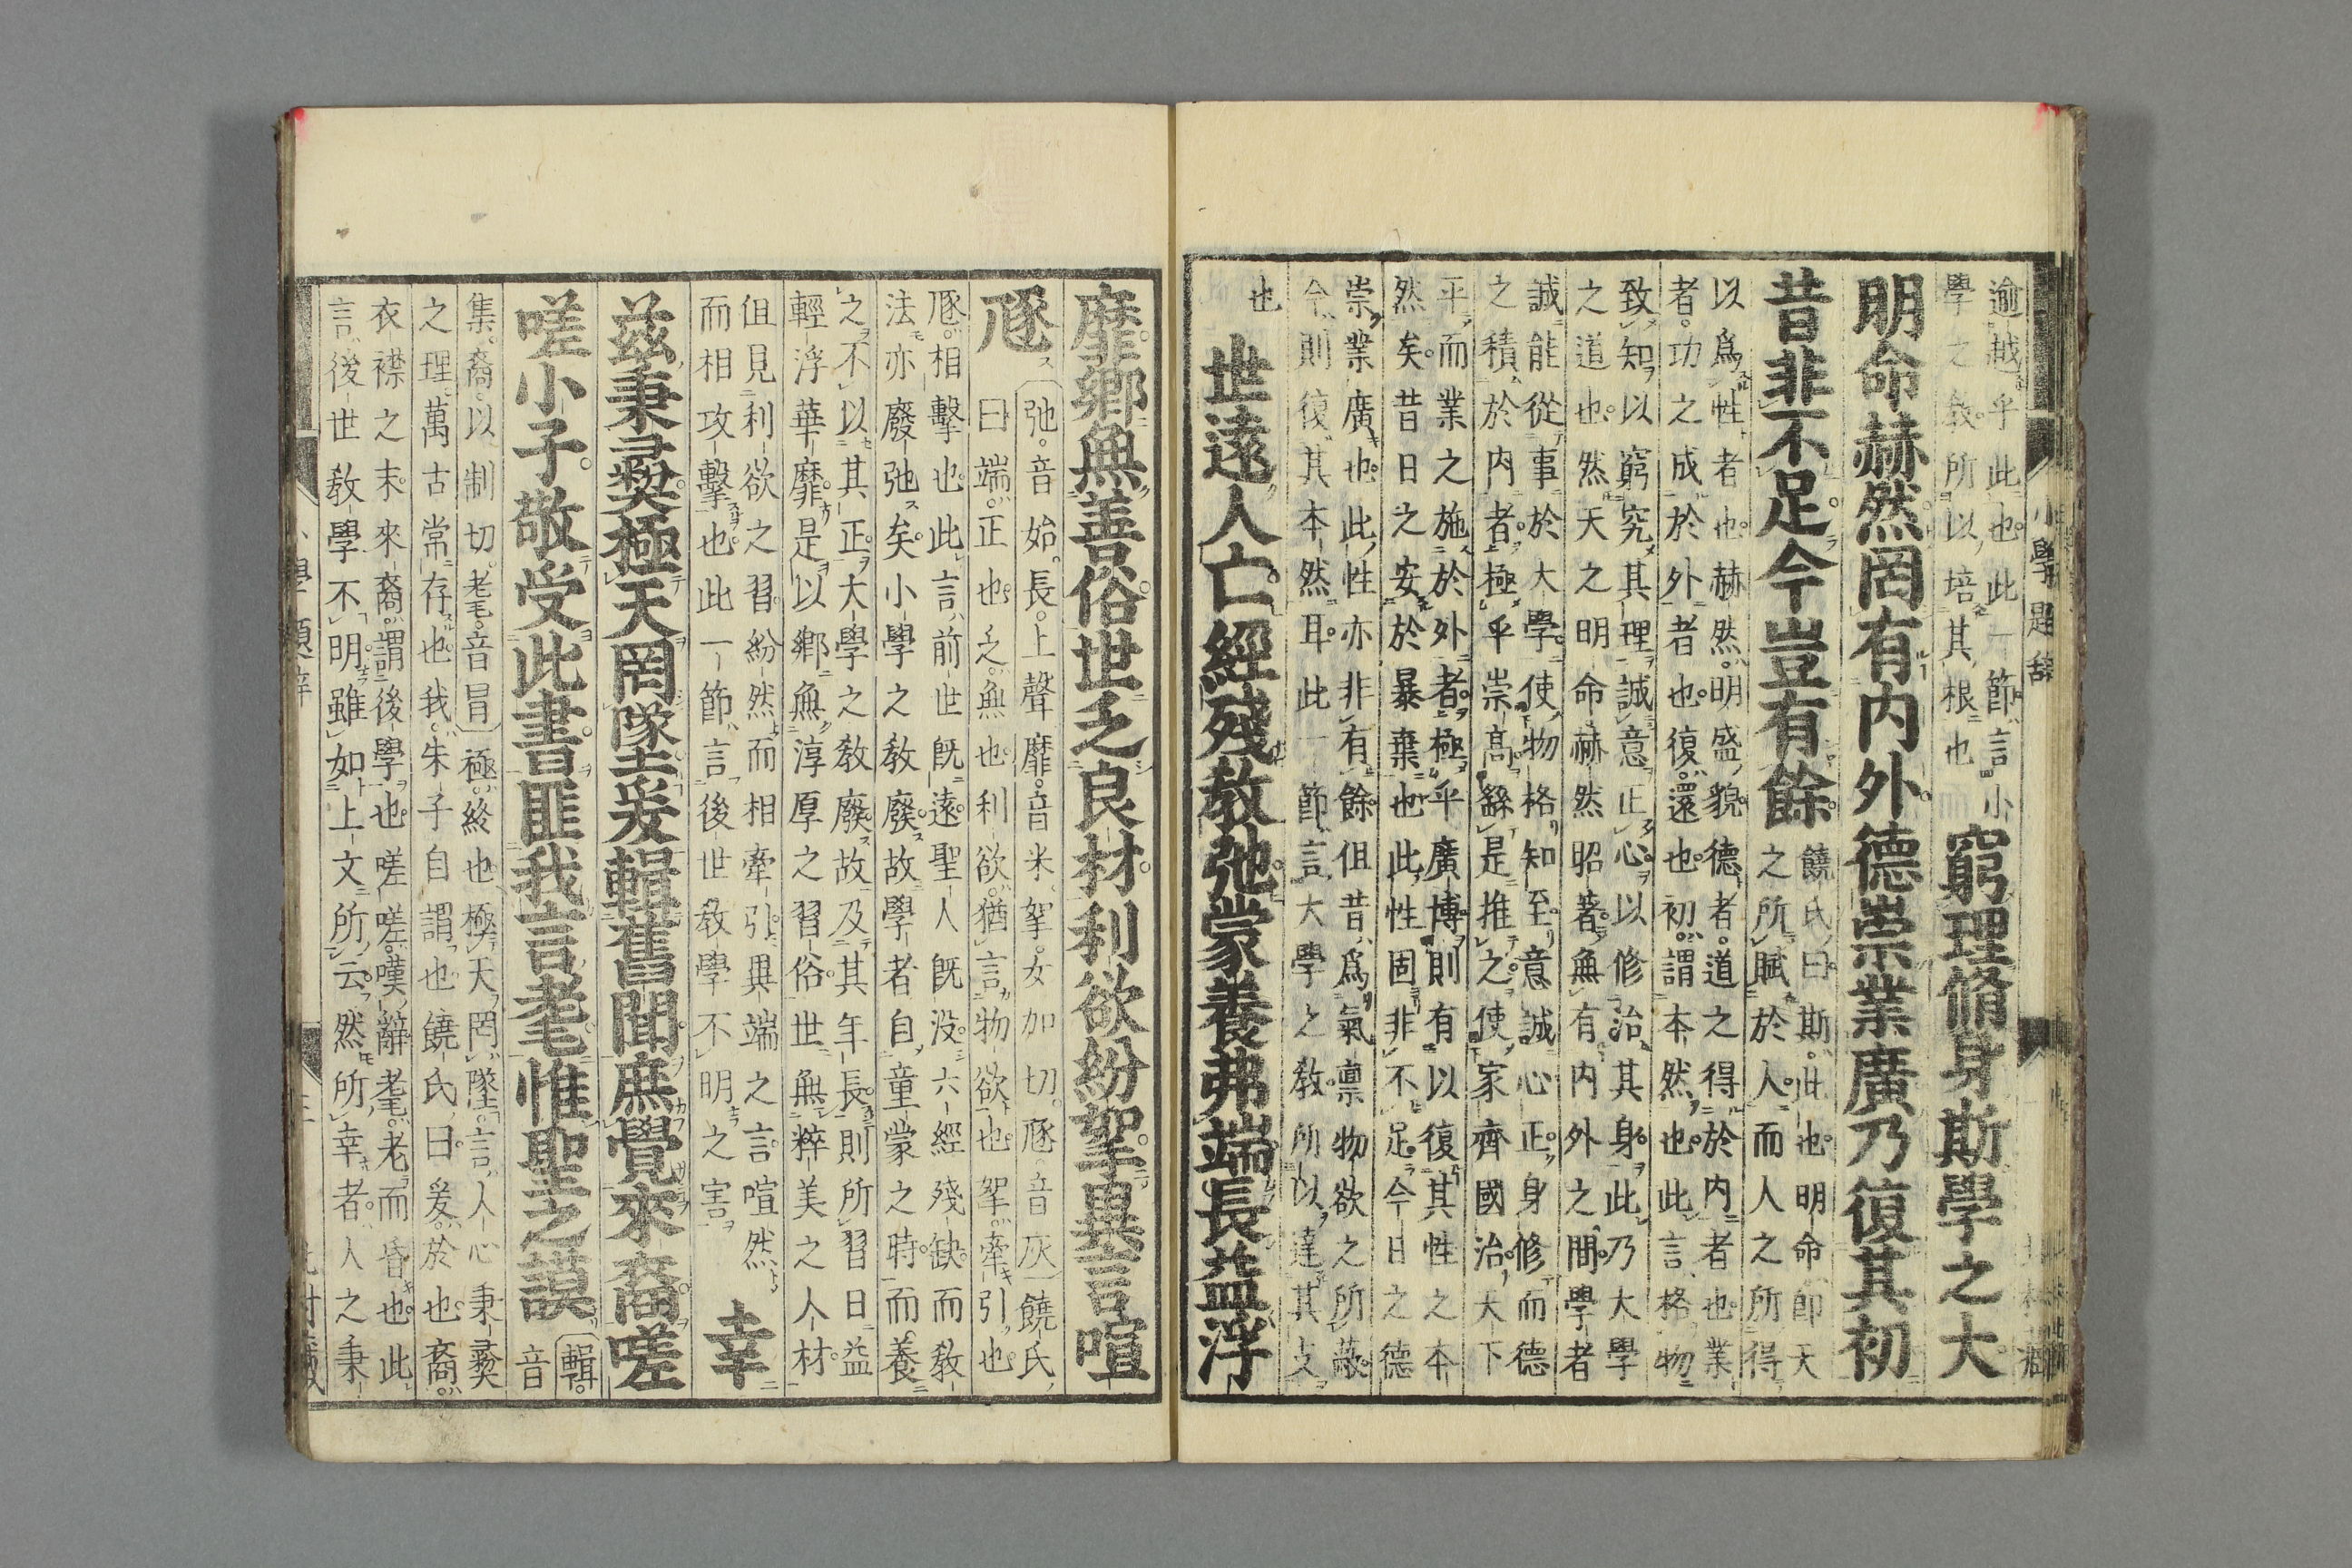 逾越乎此也此一節言小
學之教所以培其根也
窮理脩身斯學之大
明命赫然罔有内外德崇業廣乃復其初
昔非不足今豈有餘
饒氏曰斯此也明命即天
之所賦於人而人之所得
以爲性者也赫然明盛貌德者道之得於内者也業
者功之成於外者也復還也初謂本然也此言格物
致知以窮究其理誠意正心以修治其身此乃大學
之道也然天之明命赫然昭著無有内外之間學者
誠能從事於大學使物格知至意誠心正身修而德
之積於内者極乎崇高繇是推之使家齊國治天下
平而業之施於外者極乎廣博則有以復其性之本
然矣昔日之安於暴棄也此性固非不足今日之德
崇業廣也此性亦非有餘但昔爲氣稟物欲之所蔽
今則復其本然耳此一節言大學之教所以達其支
也
世遠人亡經殘教弛蒙養弗端長益浮
靡鄉無善俗世乏良材利欲紛挐異言喧
豗
弛音始長上聲靡音米挐女加切豗音灰饒氏
曰端正也乏無也利欲猶言物欲也挐牽引也
豗相擊也此言前世既遠聖人既没六經殘缺而教
法亦廢弛矣小學之教廢故學者自童蒙之時而養
之不以其正大學之教廢故及其年長則所習日益
輕浮華靡是以鄉無淳厚之習俗世無粹美之人材
但見利欲之習紛然而相牽引異端之言喧然
而相攻擊也此一節言後世教學不明之害
幸
茲秉彛極天罔墜爰輯舊聞庶覺來裔嗟
嗟小子敬受此書匪我言耄惟聖之謨
輯音
集裔以制切耄音冒極終也極天罔墜言人心秉彛
之理萬古常存也我朱子自謂也饒氏曰爰於也裔
衣襟之末來裔謂後學也嗟嗟嘆辭耄老而昏也此
言後世教學不明雖如上文所云然所幸者人之秉